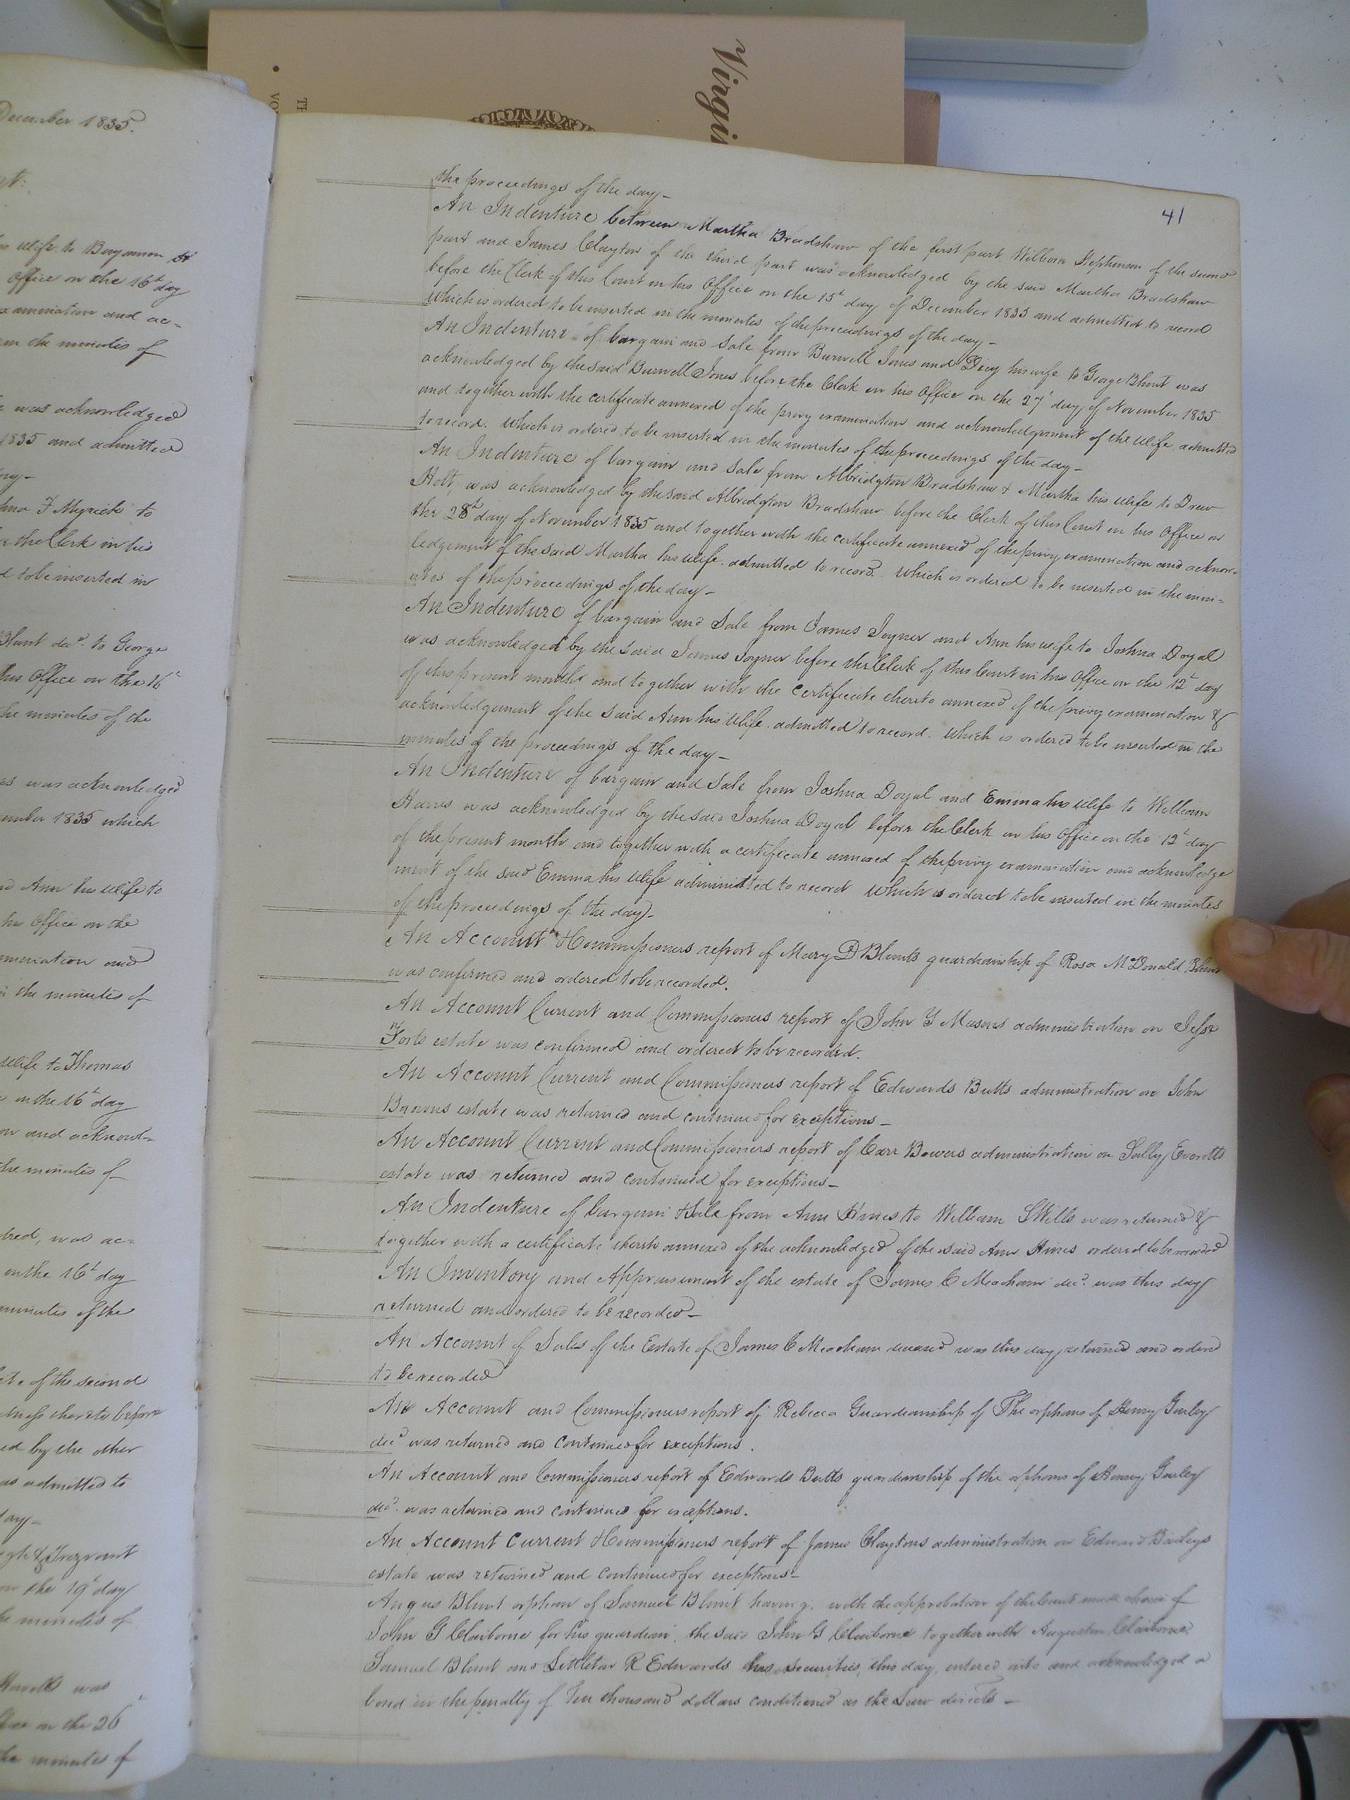 Virgi
December 1835.
his wife to Benjamin
Office on the 16t day
examination and ac=
in the minutes of
was acknowledged
1835 and admitted
day—
F Myrick to
the Clerk in his
to be inserted in
Blunt decd. to George
his Office on the 16t
the minutes of the
was acknowledged
1835 which
Ann his wife to
his Office on the
examination and
in the minutes of
wife to Thomas
on the 16t day
and acknowl=
the minutes of
was ac=
on the 16t day
minutes of the
of the second
thereto before
by the other
was admitted to
day—
on the 19t day
the minutes of
was
on the 26
the minutes of
41
the proceedings of the day—
An Indenture between Martha Bradshaw of the first part William Stephenson of the second
part and James Clayton of the third part was acknowledged by the said Martha Bradshaw
before the Clerk of this Court in his Office on the 15t day of December 1835 and admitted to record
which is ordered to be inserted in the minutes of the proceedings of the day—
An Indenture of bargain and Sale from Burwell Jones and his wife to George Blunt was
acknowledged by the said Burwell Jones before the Clerk in his Office on the 27t day of November 1835
and together with the certificate annexed of the privy examination and acknowledgment of the wife admitted
to record. which is ordered to be inserted in the minutes of the proceedings of the day—
An Indenture of bargain and Sale from Albridgton Bradshaw & Martha his wife to Drew
Holt, was acknowledged by the said Albridgton Bradshaw before the Clerk of this Court in his Office on
the 28t day of November 1835 and together with the certificate annexed of the privy examination and acknow-
ledgement of the said Martha his wife. admitted to record. which is ordered to be inserted in the min-
utes of the proceedings of the day—
An Indenture of bargain and Sale from James Joyner and Ann his wife to Joshua Doyal
was acknowledged by the said James Joyner before the Clerk of this Court in his Office on the 12t day
of this present month and together with the certificate thereto annexed of the privy examination &
acknowledgement of the said Ann his wife. admitted to record. which is ordered to be inserted in the
minutes of the proceedings of the day—
An Indenture of bargain and Sale from Joshua Doyal and Emma his wife to William
Harris was acknowledged by the said Joshua Doyal before the Clerk in his Office on the 12t day
of the present month and together with a certificate annexed of the privy examination and acknowledge
ment of the said Emma his wife admitted to record which is ordered to be inserted in the minutes
of the proceedings of the day—
An Account & Commissioners report of Mary D Blunts guardianship of Rosa McDonald Blunt
was confirmed and ordered to be recorded.
An Account Current and Commissioners report of John Y Masons administration on Jesse
Forts estate was confirmed and ordered to be recorded.
An Account Current and Commissioners report of Edwards Butts administration on John
Browns estate was returned and continued for exceptions—
An Account Current and Commissioners report of Carr Bowers administration on Sally Everetts
estate was returned and continued for exceptions—
An Indenture of bargain & Sale from Ann Hines to William S Wills was returned &
together with a certificate thereto annexed of the acknowledged of the said Ann Hines ordered to be recorded
An Inventory and Appraisement of the estate of James C Meacham decd. was this day
returned and ordered to be recorded—
An Account of Sales of the Estate of James C Meacham deceased was this day returned and ordered
to be recorded
An Account and Commissioners report of Rebecca Guardianship of The orphans of Henry Gurley
decd was returned and continued for exceptions.
An Account and Commissioners report of Edwards Butts guardianship of the orphans of Henry Gurley
decd. was returned and continued for exceptions.
An Account Current & Commissioners report of James Claytons administration on Edward Baileys
estate was returned and continued for exceptions—
Angus Blunt orphan of Samuel Blunt having. with the approbation of the Court made choice of
John G Claiborne for his guardian, the said John G Claiborne together with Augustin Claiborne
Samuel Blunt and Littleton R Edwards his Securities, this day, entered into and acknowledged a
bond in the penalty of Ten thousand dollars conditioned as the Law directs—